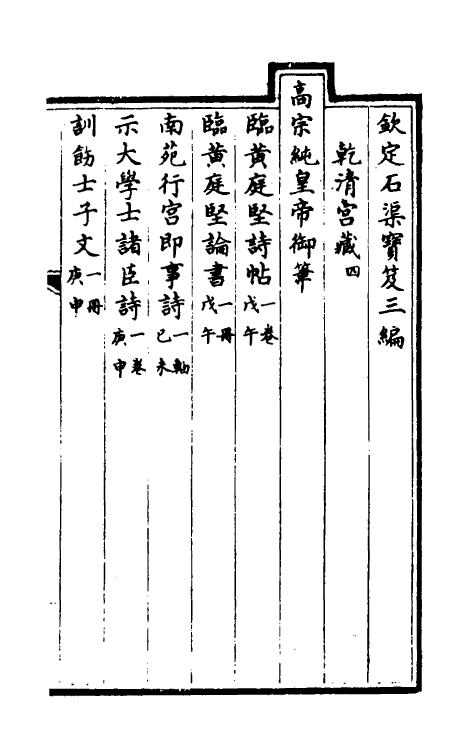 欽定石渠寶笈三編
乾清宮藏四
高宗純皇帝御筆
臨黃庭堅詩帖一卷戊午
臨黃庭堅論書一冊戊午
南苑行宮即事詩一軸己未
示大學士諸臣詩一卷庚申
訓飭士子文一冊庚申